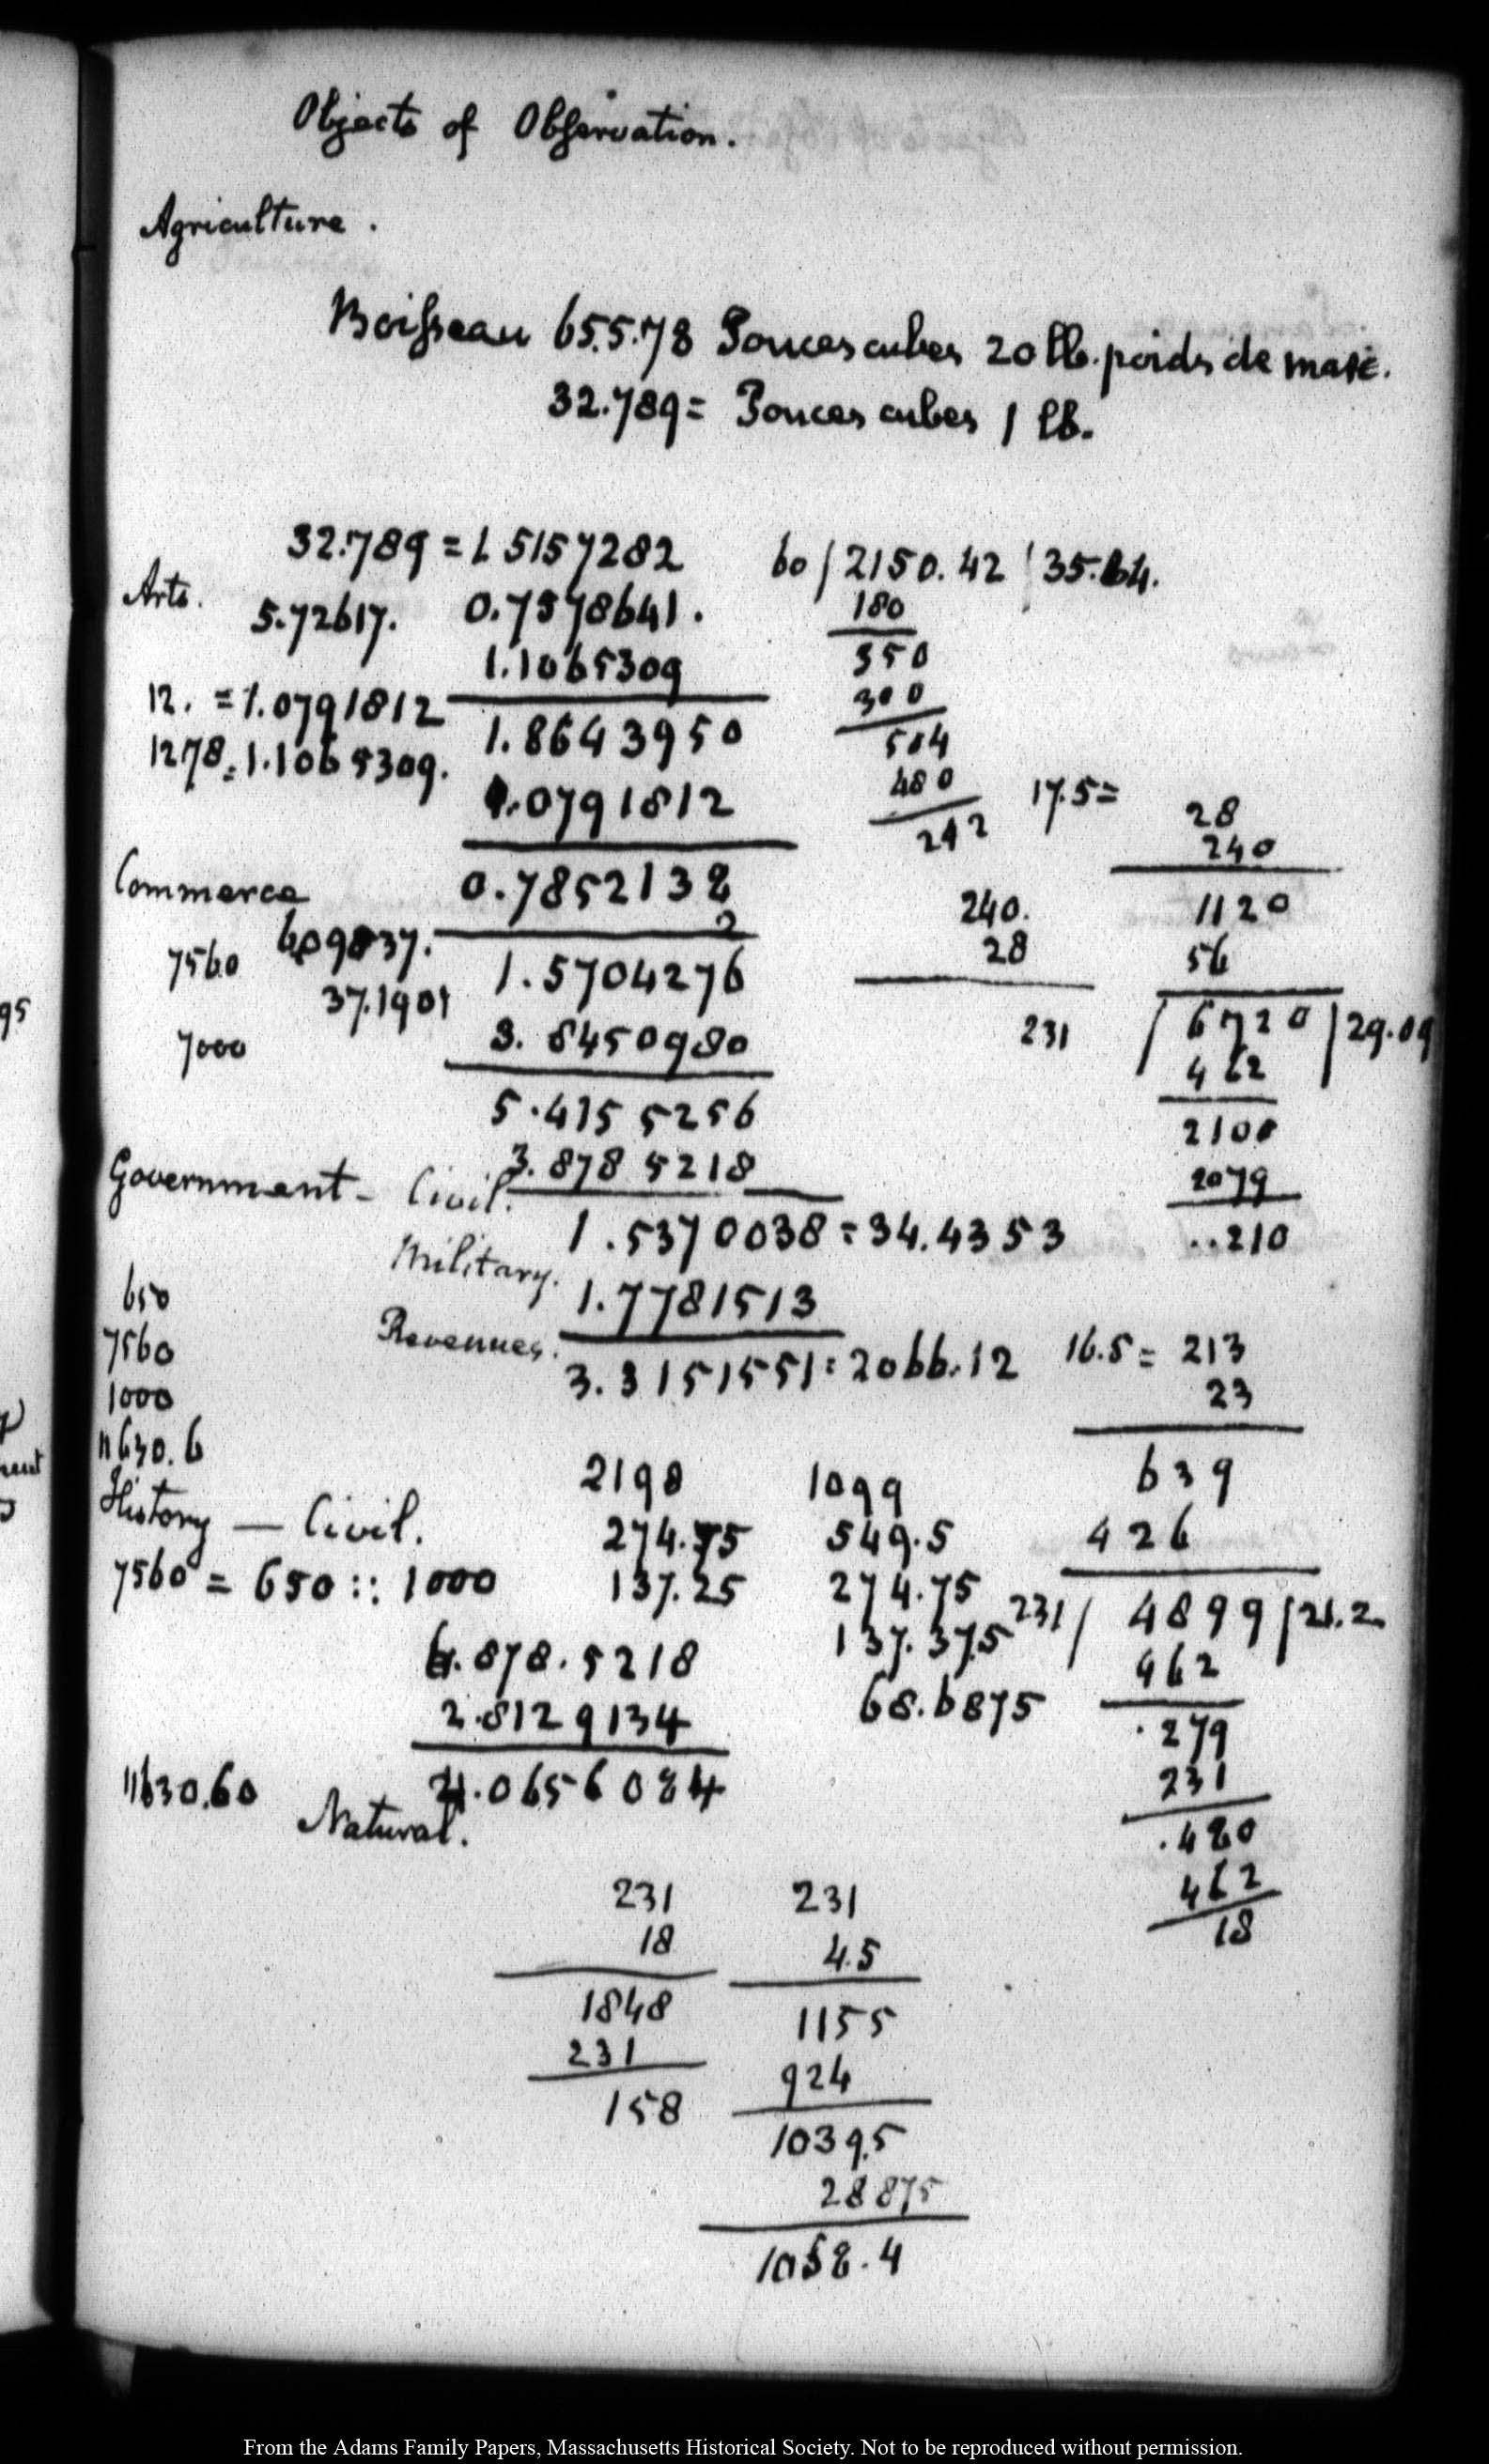 Objects of Observation.
Agriculture.
Boisseau 655.78 Pouces cubes 20 lb. poids de marc.
32.789 = Pouces cubes 1 lb.
32.789 = 1.5157282
60 / 2150.42 / 35.84.
Arts.
5.72617. 0.7578641.
180
1.1065309
350
12. = 1.0791812
300
1.8643950
504
1278 = 1.1065309.
480
1.0791812
242
17.5 =
28
240
Commerce
0.7852138
240.
1120
2
28
56
7560 609837.
1.5704276
37.1901
231 / 6720 / 29.09
7000
3.8450980
462
5.4155256
2100
Government - Civil.
3.8785218
2079
1.5370038 = 34.4353
..210
Military.
1.7781513
650
Revenues.
3.3151551 = 2066.12
7560
1000
16.5 = 213
23
11630.6
2198
1099
639
History — Civil.
274.75
549.5
426
7560 = 650 :: 1000
137.25
274.75
231 / 4899 / 21.2
137.375
6.878.5218
462
68.6875
2.8129134
.279
11630.60
4.0656084
231
Natural.
.480
462
18
231
18
1848
231
158
231
4.5
1155
924
1039.5
28875
1058.4
95
From the Adams Family Papers, Massachusetts Historical Society. Not to be reproduced without permission.